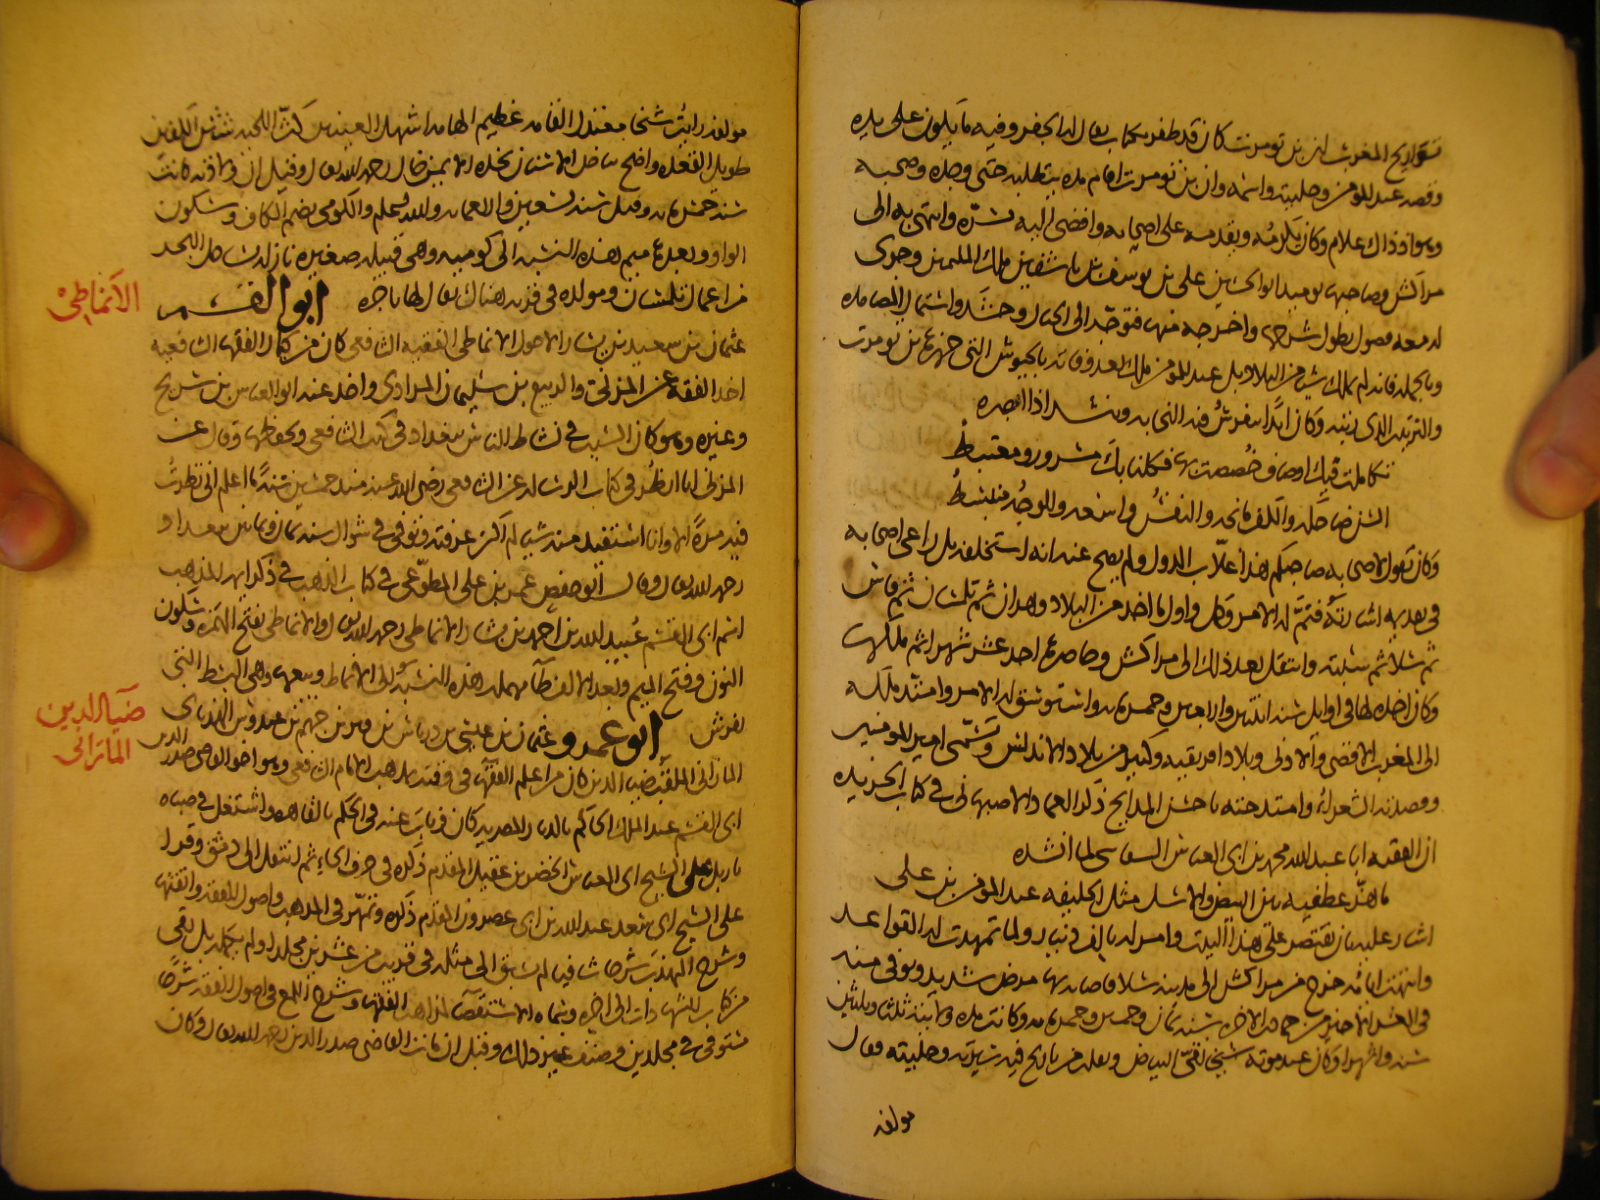 تواريخ المغرب ان ابن تومرت كان قد ظفر بكتاب يقال له الجفر وفيه ما يكون على يده
وقصة عبد المؤمن وحليته واسمه وان ابن تومرت اقام مدة يتطلبه حتى وجده وصحبه
وهو اذ ذاك غلام وكان يكرمه ويقدمه على اصحابه وافضى اليه بسره وانتهى به الى
مراكش وصاحبها يوميذ ابو الحسن على بن يوسف بن تاشفين ملك الملثمين وجرى
له معه فصول يطول شرحها واخرجه منها فتوجه الى الجبال وحشد واستمال المصامدة
وبالجملة فانه لم يملك شيا من البلاد بل عبد المومن ملك بعد وفاته بالجيوش التى جهزها ابن تومرت
والترتيب الذى رتبه وكان ابدا يتفرس فيه النجابه وينشد اذا ابصره
تكاملت فيك اوصاف خصصت بها فكلنا بك مسرور ومغتبط
السن ضاحكة والكف مانحة والنفس واسعة والوجه منبسط
وكان يقول لاصحابه صاحبكم هذا غلاب الدول ولم يصح عنه انه استخلفه بل راعى اصحابه
فى تقديمه اشارته فتم له الامر وكمل واول ما اخذ من البلاد وهران ثم تلمسان ثم فاس
ثم سلا ثم سبته وانتقل بعد ذلك الى مراكش وحاصرها احد عشر شهرا ثم ملكها
وكان اخذه لها فى اوايل سنة اثنتين واربعين وخمسمايه واستوسق له الامر وامتد ملكه
الى المغرب الاقصى والادنى وبلاد افريقيه وكثير من بلاد الاندلس وتسمى امير المومنين
وقصدته الشعراء وامتدحته باحسن المدايح ذكر العماد الاصبهانى فى كتاب الخريده
ان الفقيه ابا عبد الله محمد بن ابى العباس لما انشده
ما هز عطفيه بين البيض والاسل مثل الخليفه عبد المومن بن على
اشار عليه بان يقتصر على هذا البيت وامر له بالف دينار ولما تمهدت له القواعد
وانتهت ايامه خرج من مراكش الى مدينة سلا فاصابه بها مرض شديد وتوفى منه
فى العشر الاخير من جمادى الاخره سنة ثمان وخمسين وخمسمايه وكانت مدة ولايته ثلثا وثلثين
سنة واشهرا وكان عند موته شيخا نقى البياض ونقلت من تاريخ فيه سيرته وحليته وقال
مولفه
مولفه رايت شيخا معتدل القامة عظيم الهامة اشهل العينين كث اللحيه شثن الكفين
طويل القعدة واضح بياض الاسنان بخده الايمن خال رحمه الله تعالى وقيل ان ولادته كانت
سنة خمسمايه وقيل سنة تسعين واربعمايه والله اعلم والكومى بضم الكاف وسكون
الواو وبعدها ميم هذه النسبه الى كوميه وهى قبيله صغيره نازلة بساحل البحر
من اعمال تلمسان ومولده فى قريه هناك يقال لها تاجره ابو القسم
عثمان بن سعيد بن بشار الاحول الانماطى الفقيه الشافعى كان من كبار الفقها الشافعيه
اخذ الفقه عن المزنى والربيع بن سليمان المرادى واخذ عنه ابو العباس بن سريج
وغيره وهو كان السبب فى نشاط الناس ببغداد فى كتب الشافعى وتحفظها وقال عن
المزنى انا انظر فى كتاب الرساله عن الشافعى رضى الله عنه منذ خمسين سنة ما اعلم انى نظرت
فيه مرة الا وانا استفيد منه شيا لم اكن عرفته وتوفى فى شوال سنة ثمان وثمانين ببغداد
رحمه الله تعالى وقال ابو حفص عمر بن على المطوعى فى كتاب المذهب فى ذكر ايمة المذهب
اسم ابى القسم عبيد الله بن احمد بن بشار الانماطى رحمه الله تعالى والانماطى بفتح الهمزه وسكون
النون وفتح الميم وبعد الالف طآ مهمله هذه النسبة الى الانماط وبيعها وهى البسط التى
تفرش ابو عمرو عثمان بن عيسى بن درباس بن فير بن جهم بن عبدوس الهدبانى
المارانى الملقب ضيا الدين كان من اعلم الفقها فى وقته بمذهب الامام الشافعى وهو اخو القاضى صدر الدين
ابى القسم عبد الملك الحاكم بالديار المصريه كان وناب عنه فى الحكم بالقاهره واشتغل فى صباه
باربل على الشيخ ابى العباس الخضر بن عقيل المقدم ذكره فى حرف الخاء ثم انتقل الى دمشق وقرا
على الشيخ ابى سعد عبد الله بن ابى عصرون المقدم ذكره وتمهر فى المذهب واصول الفقه واتقنها
وشرح المهذب شرحا شافيا لم يسبق الى مثله فى قريب من عشرين مجلدا ولم يكمله بل بقى
من كتاب الشهادات الى اخره وسماه الاستقصآ لمذاهب الفقها وشرح اللمع فى اصول الفقه شرحا
مستوفى فى مجلدين وصنف غير ذلك وقيل ان مات القاضى صدر الدين رحمه الله تعالى وكان
الانماطى
ضياء الدين
المارانى